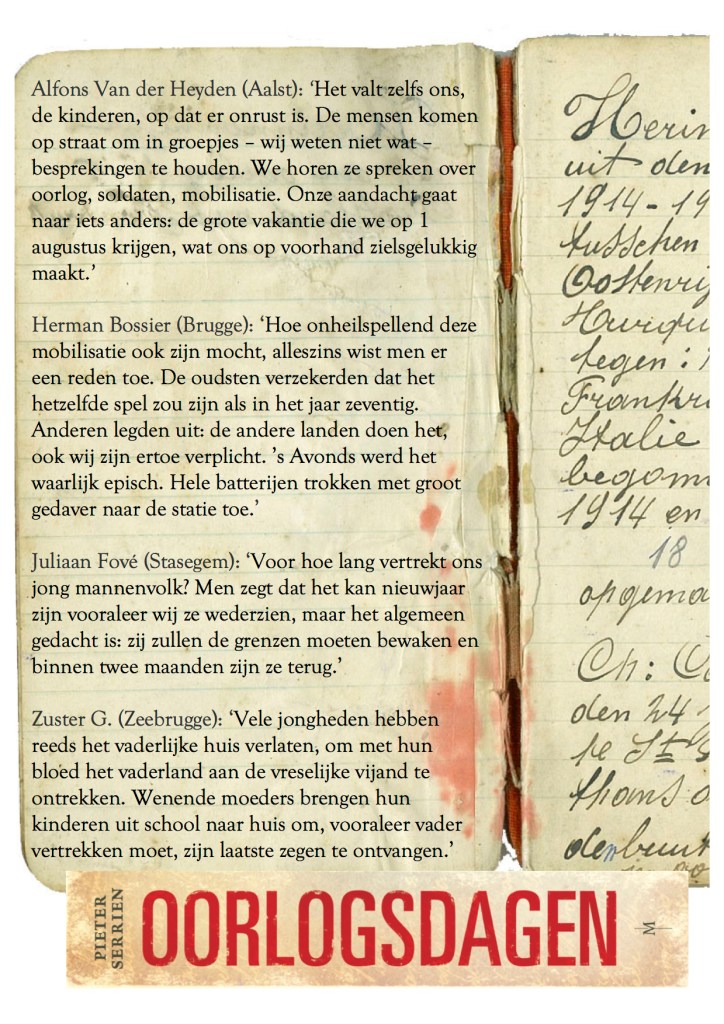 Alfons Van der Heyden (Aalst): ‘Het valt zelfs ons,
de kinderen, op dat er onrust is. De mensen komen
op straat om in groepjes – wij weten niet wat –
besprekingen te houden. We horen ze spreken over
oorlog, soldaten, mobilisatie. Onze aandacht gaat
naar iets anders: de grote vakantie die we op 1
augustus krijgen, wat ons op voorhand zielsgelukkig
maakt.’
Herman Bossier (Brugge): ‘Hoe onheilspellend deze
mobilisatie ook zijn mocht, alleszins wist men er
een reden toe. De oudsten verzekerden dat het
hetzelfde spel zou zijn als in het jaar zeventig.
Anderen legden uit: de andere landen doen het,
ook wij zijn ertoe verplicht. ’s Avonds werd het
waarlijk episch. Hele batterijen trokken met groot
gedaver naar de statie toe.’
Juliaan Fové (Stasegem): ‘Voor hoe lang vertrekt ons
jong mannenvolk? Men zegt dat het kan nieuwjaar
zijn vooraleer wij ze wederzien, maar het algemeen
gedacht is: zij zullen de grenzen moeten bewaken en
binnen twee maanden zijn ze terug.’
Zuster G. (Zeebrugge): ‘Vele jongheden hebben
reeds het vaderlijke huis verlaten, om met hun
bloed het vaderland aan de vreselijke vijand te
ontrekken. Wenende moeders brengen hun
kinderen uit school naar huis om, vooraleer vader
vertrekken moet, zijn laatste zegen te ontvangen.’
Herin
uit den
1914-19
tusschen
Oostenrij
tegen:
Frankr
Italie
begonn
1914 en
18
opgema
Ch:
den 24
te St
thans
PIETER
SERRIEN
OORLOGSDAGEN
M